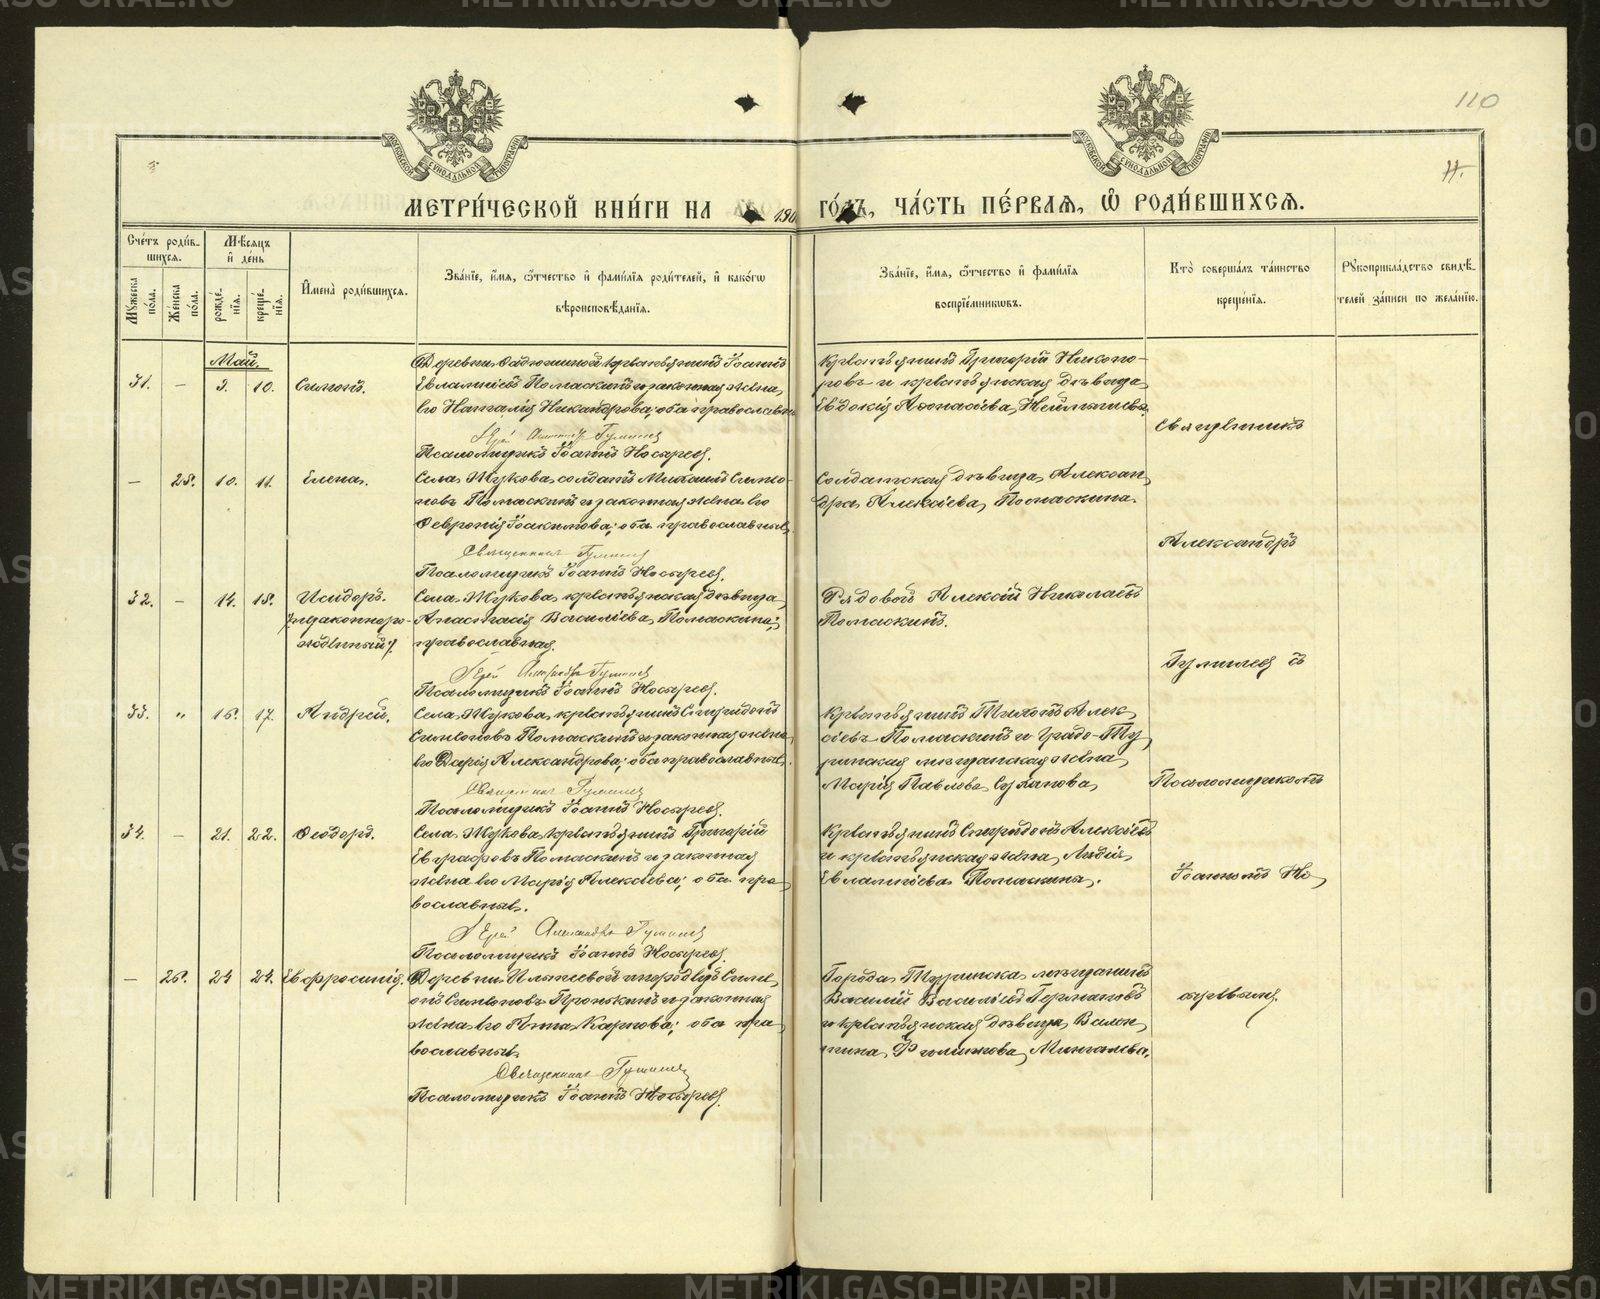 110
11.
МЕТРИ́ЧЕСКОЙ КНИ́ГИ НА 190 ГО́ДЪ, ЧА́СТЬ ПЕ́РВАѦ, Ѽ РОДИ́ВШИХСѦ.
Сче́тъ роди́вшихся.
Мꙋ́жеска по́ла.
Же́нска по́ла.
Мѣ́сяцъ и҆ де́нь
рожде́нїя.
креще́нїя.
И҆мена̀ роди́вшихся.
Зва́нїе, и҆́мя, ѻ҆́тчество и҆ фами́лїя роди́телей, и҆ како́гѡ
вѣроисповѣ́данїя.
Зва́нїе, и҆́мя, ѻ҆́тчество и҆ фами́лїя
воспрїе́мникѡвъ.
Кто̀ соверша́лъ та́инство
креще́нїя.
Рꙋкоприкла́дство свидѣ́-
телей за́писи по жела́нїю.
Май.
31. — 3. 10. Симонъ.
Деревни крестьянинъ Іоаннъ
Евлампіевъ Помаскинъ и законная жена
его Наталія Никандрова; оба православн
Іерей Александръ Гумилев
Псаломщикъ Іоаннъ Носырев.
Крестьянинъ Григорій Никоно-
ровъ и крестьянская дѣвица
Евдокія Афонасіева
— 25. 10. 11. Елена.
Села Жукова солдатъ Михаилъ Симео-
новъ Помаскинъ и законная жена его
Февронія Іоакимова; оба православные.
Священник Гумилев
Псаломщикъ Іоаннъ Носырев.
Солдатская дѣвица Алексан-
дра Алексіева Помаскина.
32. — 14. 15. Исидоръ.
/незаконноро-
жденный/.
Села Жукова крестьянская дѣвица
Анастасія Василіева Помаскина;
православная.
Іерей Александръ Гумилев
Псаломщикъ Іоаннъ Носырев.
Рядовой Алексій Николаевъ
Помаскинъ.
33. " 16. 17. Андрей.
Села Жукова крестьянинъ Спиридонъ
Симеоновъ Помаскинъ и законная жена
его Дарія Александрова; оба православные.
Священник Гумилев
Псаломщикъ Іоаннъ Носырев.
Крестьянинъ Тихонъ Алек-
сіевъ Помаскинъ и Градо-Ту-
ринская мещанская жена
Марія Павлова Суханова
34. — 21. 22. Феодоръ.
Села Жукова крестьянинъ Григорій
Евграфовъ Помаскинъ и законная
жена его Марія Алексіева; оба пра-
вославные.
Іерей Александръ Гумилев
Псаломщикъ Іоаннъ Носырев.
Крестьянинъ Спиридонъ Алексіевъ
и крестьянская жена Лидія
Евлампіева Помаскины.
— 26. 24 24. Евфросинія.
Деревни Симе-
онъ Симеоновъ Пронькинъ и законная
жена его Анна Карпова; оба пра-
вославные.
Священник Гумилев
Псаломщикъ Іоаннъ Носырев.
Города Туринска мещанинъ
Василій Василіевъ Германовъ
и крестьянская дѣвица Вален-
тина Филиппова Мингалева.
Священникъ
Александръ
Гумилев съ
Псаломщикомъ
Іоанномъ Но-
сыревым.
METRIKI.GASO-URAL.RU